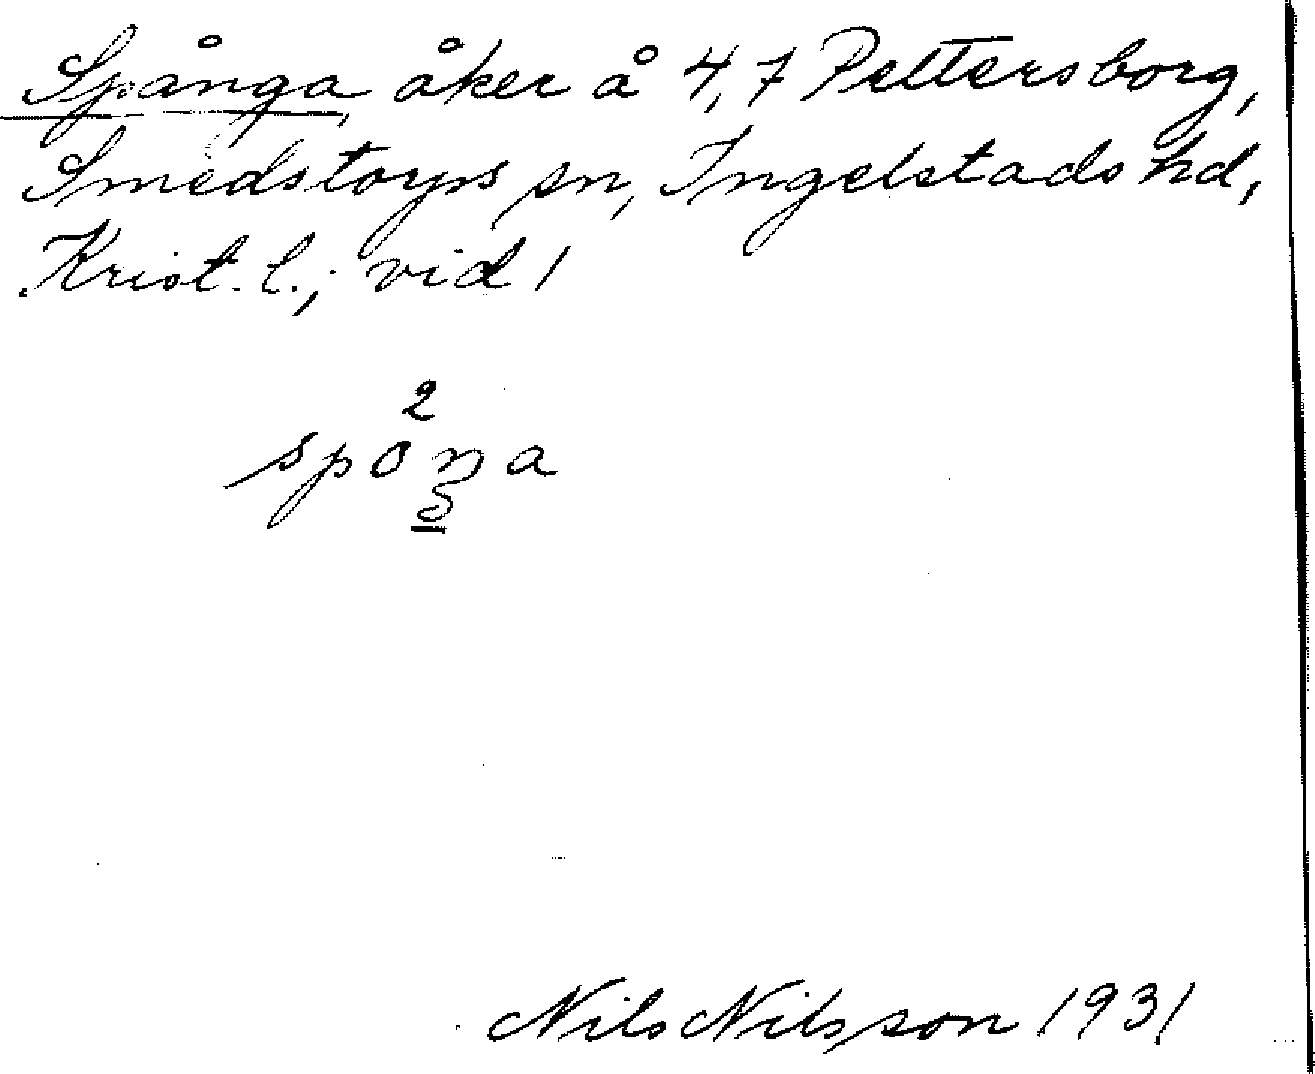 Spånga, åker å 4,7 Pettersborg,
Smedstorps sn, Ingelstads hd,
Krist. l.; vid 1
2
spoŋa
Nils Nilsson 1931